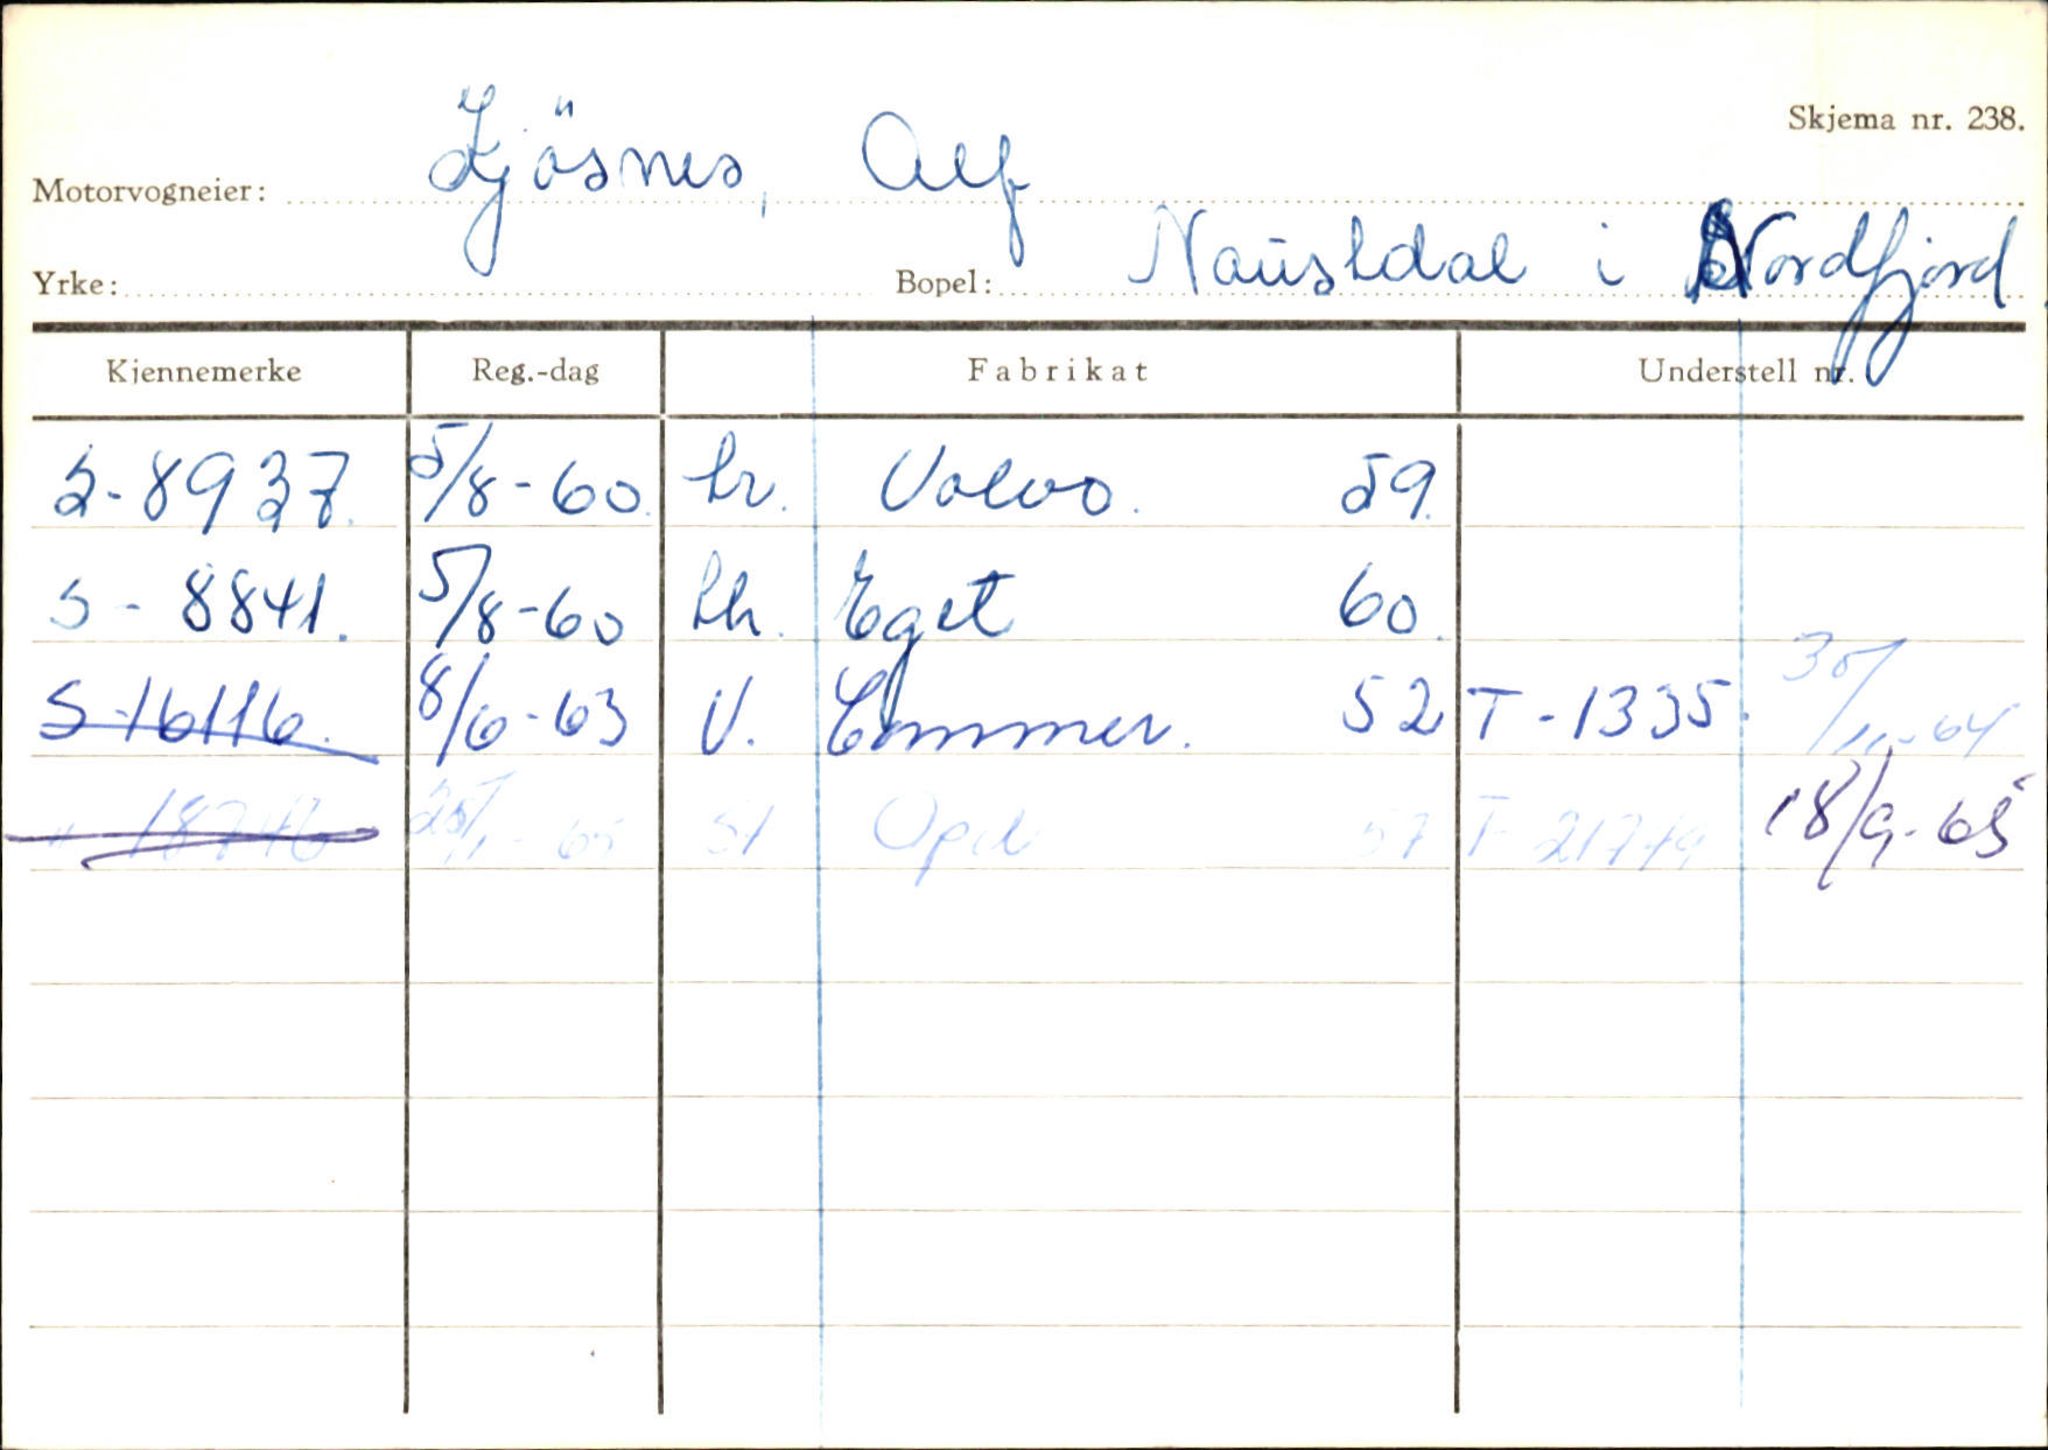 Skjema nr. 238.
Motorvogneier: Ljösnes, Alf
Yrke: Bopel: Naustdal i Nordfjord.
Kjennemerke Reg.-dag Fabrikat Understell nr.
S-8937. 5/8-60. Lr. Volvo. 59.
S-8841. 5/8-60 Lh. Eget 60.
S-16116. 8/6-63 V. Commer. 52 T-1335. 30/11-64
" 18746 25/1-65 St Opel 57 18/9-65